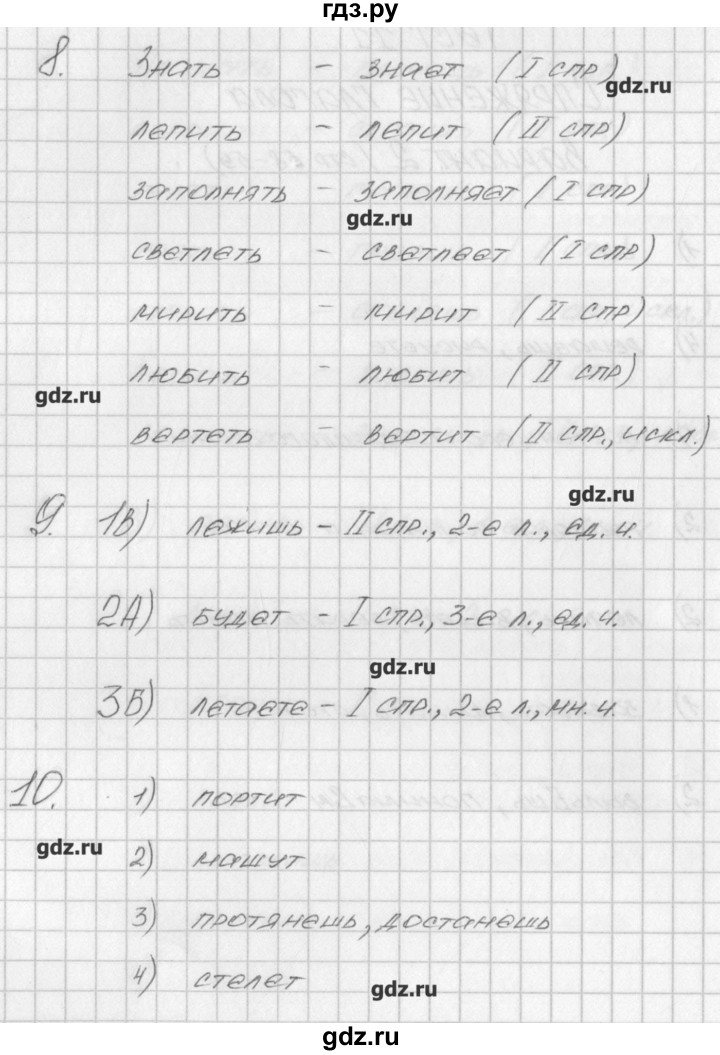 гдз.ру
8. Знать - знает (I спр)
gdz.ru
лепить - лепит (II спр)
заполнять - заполняет (I спр)
gdz.ru
светлеть - светлеет (I спр)
мирить - мирит (II спр)
любить - любит (II спр)
gdz.ru
вертеть - вертит (II спр., искл.)
gdz.ru
9. 1В) лежишь - II спр., 2-е л., ед. ч.
2А) будет - I спр., 3-е л., ед. ч.
gdz.ru
3Б) летаете - I спр., 2-е л., мн. ч.
10. 1) портит
gdz.ru
2) машут
3) протянешь, достанешь
4) стелет
gdz.ru
gdz.ru